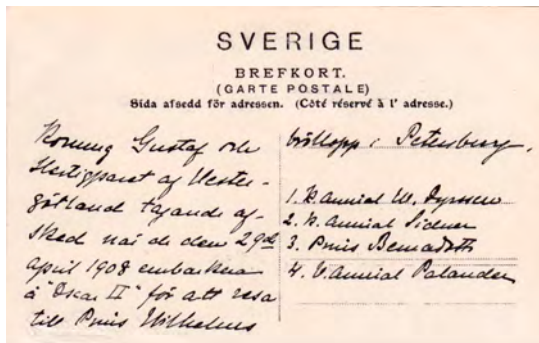 SVERIGE
BREFKORT.
(GARTE POSTALE)
Sida afsedd för adressen. (Côté réservé à l' adresse.)
Konung Gustaf och
Hertigparet af Vester-
götland tagande af-
sked när de den 29de
april 1908 embarkera
å "Oscar II" för att resa
till Prins Wilhelms
bröllopp i Petersburg.
1. K. Amiral W. Dyrssen
2. K. Amiral Sidner
3. Prins Bernadotte
4. V. Amiral Palander